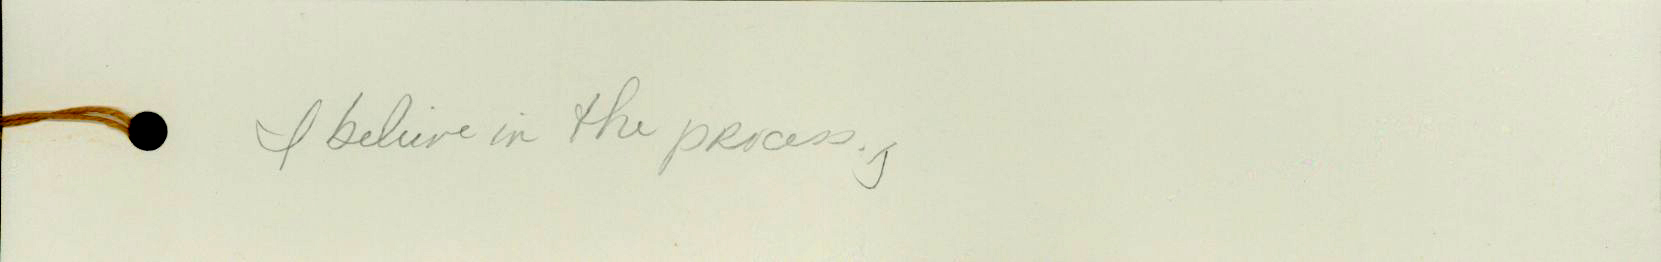 I believe in the process.